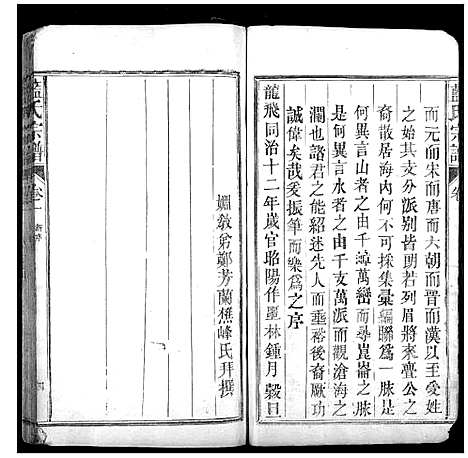 藍氏宗譜
卷
而元而宋而唐而六朝而晋而漢以至愛姓
之始其支分派别皆朗若列眉將來亶公之
裔散居海內何不可採集彙編聯為一脉是
何異言山者之千嶂萬巒而尋崑崙之脉也
是何異言水者之由千支萬派而觀滄海之
瀾也諸君之能紹述先人而垂裕後裔厥功
誠偉矣哉爰振筆而樂為之序
龍飛同治十二年歲官昭陽作噩林鍾月 穀旦
姻教弟鄭芳蘭樵峰氏拜撰
藍氏宗譜
卷一
新序
四